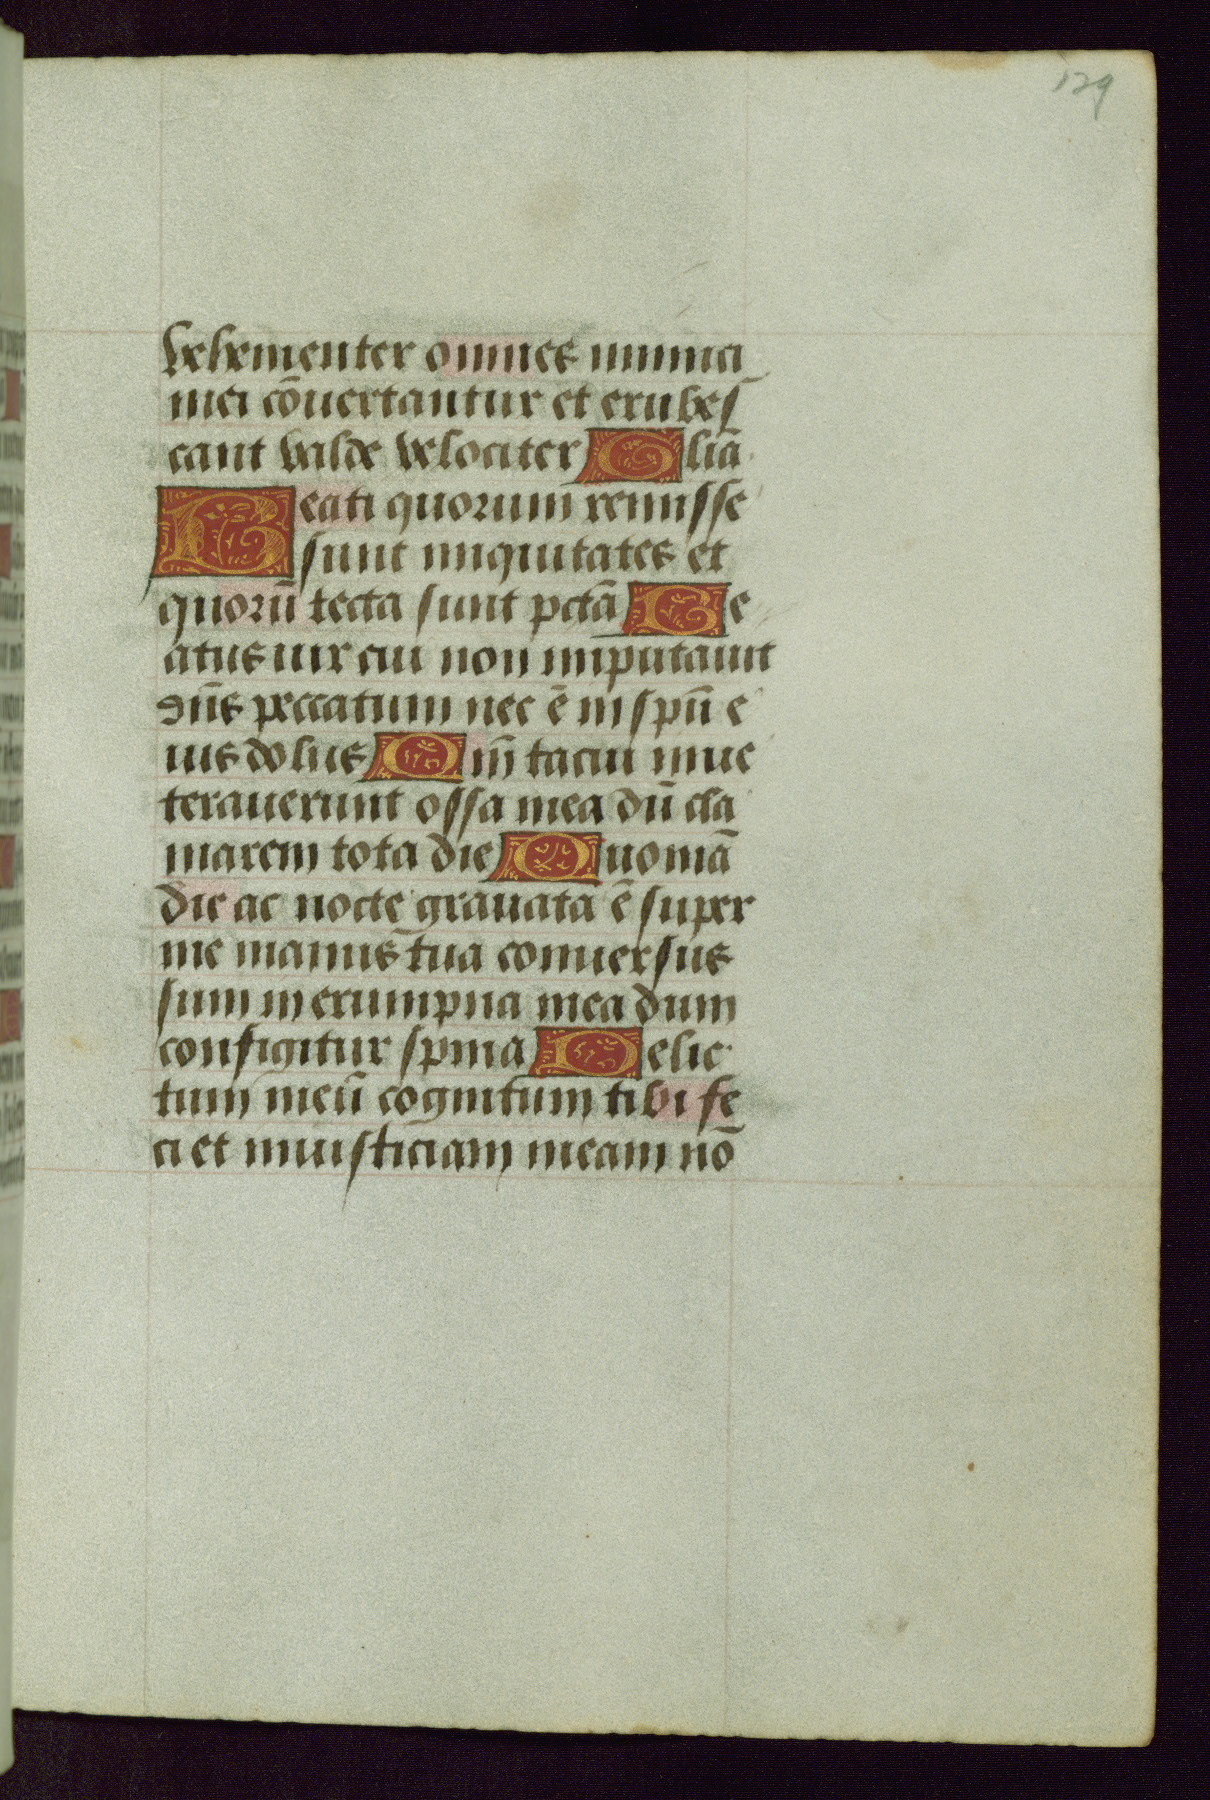 129
vehementer omnes inimici
mei cōuertantur et erubes
cant valde velociter Gliā
Beati quorum remisse
sunt iniquitates et
quorū tecta sunt pctā Be
atus uir cui non imputauit
dn̄s peccatum nec ē in spū e
ius dolus Qm̄ tacui inue
terauerunt ossa mea dū cla
marem tota die Quoniā
die ac nocte grauata ē super
me manus tua conuersus
sum in erumpna mea dum
configitur spina Delic
tum meū cognitum tibi fe
ci et iniusticiam meam nō